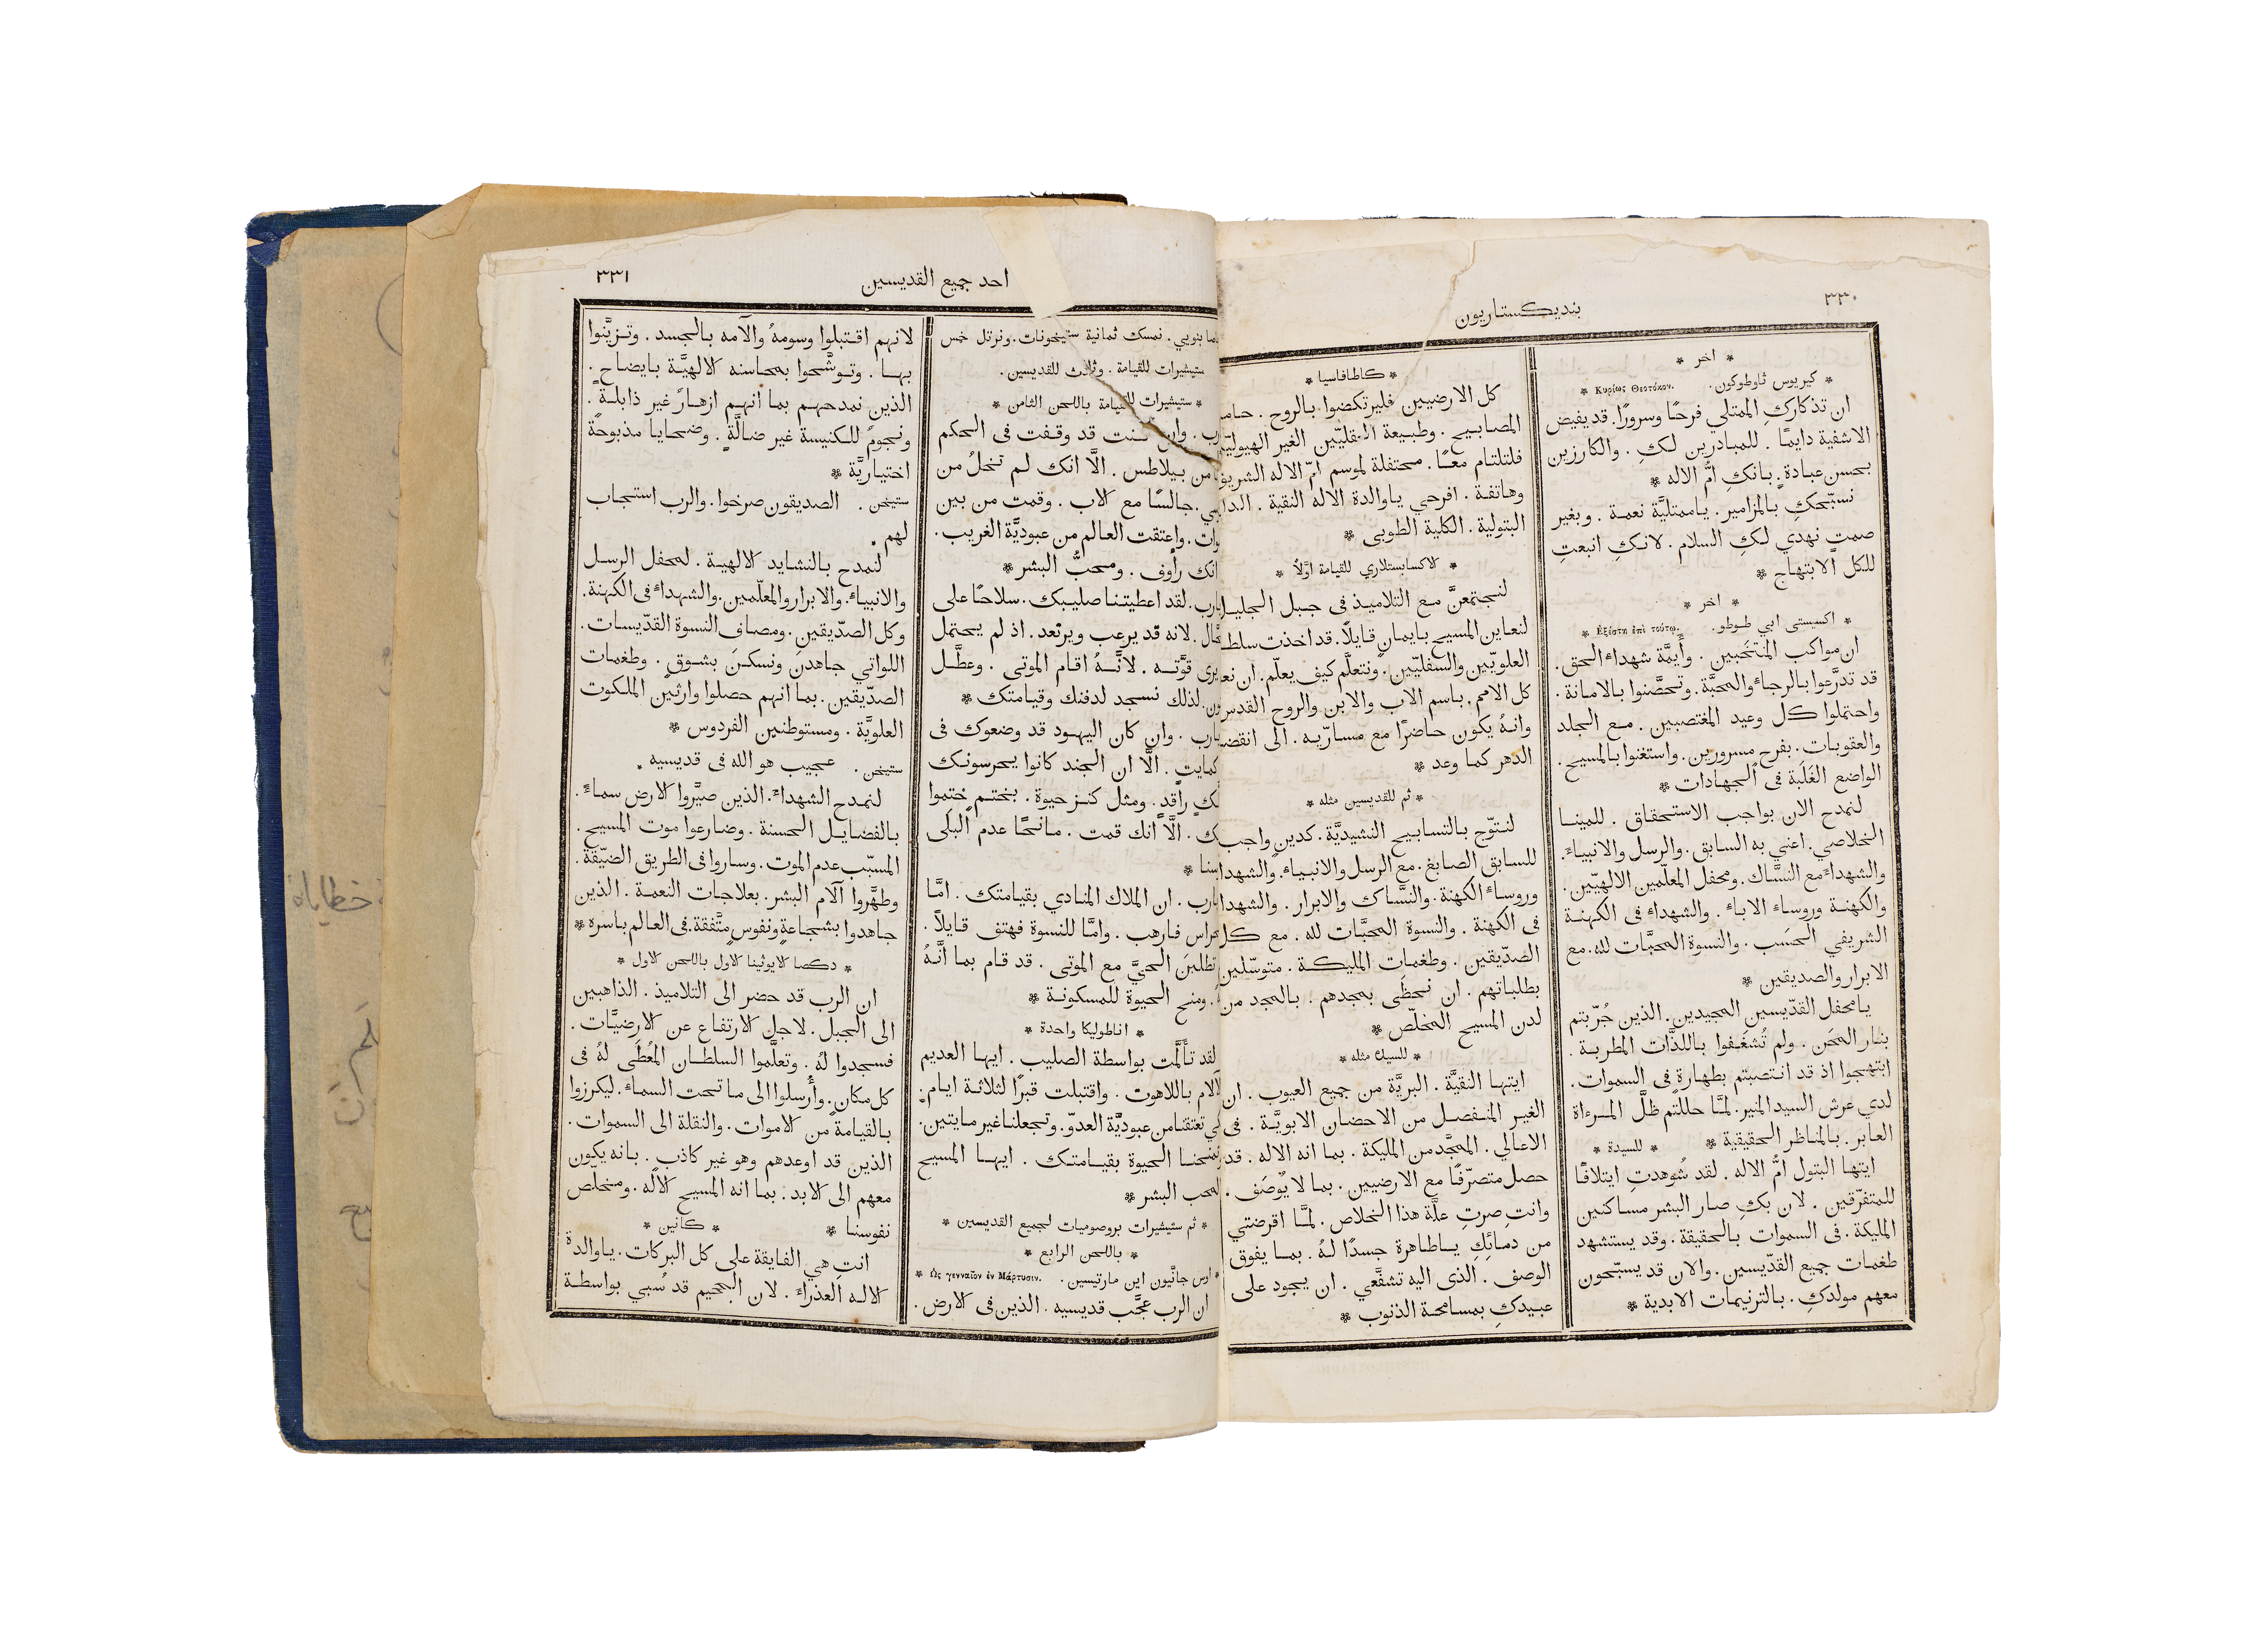 ٣٣٠
بنديكستاريون
* اخر *
* كيريوس ثاوطوكون. Κυρίως Θεοτόκον. *
ان تذكاركِ الممتلي فرحًا وسرورًا. قد يفيض
الاشفية دايمًا. للمبادرين لكِ. والكارزين
بحسن عبادةٍ. بانكِ امُّ الاله *
نسبّحكِ بالمزامير. ياممتليَّة نعمة. وبغير
صمتٍ نهدي لكِ السلام. لانكِ انبعتِ
للكل الابتهاج *
* اخر *
* اكسيستي ابي طوطو. Ἐξέστη ἐπὶ τούτῳ. *
ان مواكب المنتخَبين. وأَيمَّة شهداء الحق.
قد تدرَّعوا بالرجاء والمحبَّة. وتحصَّنوا بالامانة.
واحتملوا كل وعيد المغتصبين. مع الجلد
والعقوبات. بفرحٍ مسرورين. واستغنوا بالمسيح.
الواضع الغَلَبة في الجهادات *
لنمدح الان بواجب الاستحقاق. للمينا
الخلاصي. اعني به السابق. والرسل والانبياء.
والشهداء مع النسَّاك. ومحفل المعلّمين الالهيّين.
والكهنة وروساء الاباء. والشهداء في الكهنة
الشريفي الحسَب. والنسوة المحبَّات لله. مع
الابرار والصديقين *
يامحفل القدّيسين المجيدين. الذين جُرّبتم
بنار المحَن. ولم تُشغَفوا باللذَّات المطربة.
ابتهجوا اذ قد انتصبتم بطهارةٍ في السموات.
لدي عرش السيد المنير. لمَّا حللتم ظلَّ المرءاة
العابر. بالمناظر الحقيقية * * للسيدة *
ايتها البتول امُّ الاله. لقد شُوهدتِ ايتلافًا
للمتفرّقين. لان بكِ صار البشر مساكنين
المليكة. في السموات بالحقيقة. وقد يستشهد
طغمات جميع القدّيسين. والان قد يسبّحون
معهم مولدكِ. بالترنيمات الابدية *
* كاطافاسيا *
كل الارضيين فليرتكضوا بالروح.
المصابيح. وطبيعة العقليّين الغير
فلتلتئام معًا. محتفلة لموسم امّ الاله
وهاتفة. افرحي ياوالدة الاله النقية.
البتولية. الكلية الطوبى *
* الاكسابستلاري للقيامة اوّلاً *
لنجتمعنَّ مع التلاميذ في جبل الجليل
لنعاين المسيح بايمانٍ قايلاً. قد اخذت
العلويّين والسفليّين. ونتعلَّم كيف يعلّم. ان
كل الامم. باسم الاب والابن والروح القدس
وانهُ يكون حاضرًا مع مسارّيه. الى
الدهر كما وعد *
* ثم للقديسين مثله *
لنتوّج بالتسابيح النشيديَّة. كدينٍ واجب
للسابق الصابغ. مع الرسل والانبياء.
وروساء الكهنة. والنسَّاك والابرار.
في الكهنة. والنسوة المحبَّات لله. مع كل
الصدّيقين. وطغمات المليكة. متوسّلين
بطلباتهم. ان نحظَى بمجدهم. بالمجد من
لدن المسيح المخلّص *
* للسيدة مثله *
ايتها النقيَّة. البريَّة من جميع العيوب. ان
الغير المنفصل من الاحضان الابويَّة. في
الاعالي. المعجَّد من المليكة. بما انه الاله. قد
حصل متصرّفًا مع الارضيين. بما لا يُوصَف.
وانتِ صرتِ علَّة هذا الخلاص. لمَّا اقرضتي
من دمائكِ ياطاهرة جسدًا لهُ. بما يفوق
الوصف. الذي اليه تشفَّعي. ان يجود على
عبيدكِ بمسامحة الذنوب *
احد جميع القديسين
٣٣١
بنويي. نمسك ثمانية ستيخونات. ونرتل خمس
ستيشيرات للقيامة. وثلاث للقديسين.
* ستيشيرات للقيامة باللحن الثامن *
وان كنت قد وقفت في الحكم
من بيلاطس. الَّا انك لم تخلُ من
جالسًا مع الاب. وقمت من بين
واعتقت العالم من عبوديَّة الغريب.
انك رأوف. ومحبُّ البشر *
يارب. لقد اعطيتنا صليبك. سلاحًا على
لانه قد يرعب ويرتعد. اذ لم يحتمل
يرى قوَّته. لانَّهُ اقام الموتى. وعطَّل
لذلك نسجد لدفنك وقيامتك *
يارب. وان كان اليهود قد وضعوك في
كمايتٍ. الَّا ان الجند كانوا يحرسونك
راقدٍ. ومثل كنز حيوة. بختمٍ ختموا
الَّا انك قمت. مانحًا عدم البلَى
*
يارب. ان الملاك المنادي بقيامتك. امَّا
فارهب. وامَّا للنسوة فهتف قايلاً.
تطلبنَ الحيَّ مع الموتى. قد قام بما أنَّهُ
ومنح الحيوة للمسكونة *
* اناطوليكا واحدة *
لقد تأَلَّمت بواسطة الصليب. ايها العديم
باللاهوت. واقتبلت قبرًا لثلاثة ايام.
تعتقنا من عبوديَّة العدوّ. وتجعلنا غير مايتين.
الحيوة بقيامتك. ايها المسيح
محب البشر *
* ثم ستيشيرات بروصوميات لجميع القديسين *
* باللحن الرابع *
* اوس جانَّيون اين مارتيسين. Ὡς γενναῖον ἐν Μάρτυσιν. *
ان الرب عجَّب قديسيه. الذين في الارض.
لانهم اقتبلوا وسومهُ والآمه بالجسد. وتزيَّنوا
بها. وتوشَّحوا بمحاسنه الالهيَّة بايضاحٍ.
الذين نمدحهم بما انهم ازهارٌ غير ذابلةٍ.
ونجومٌ للكنيسة غير ضالَّةٍ. وضحايا مذبوحةٌ
اختياريَّة *
ستيخن. الصديقون صرخوا. والرب استجاب
لهم.
لنمدح بالنشايد الالهية. لمحفل الرسل
والانبياء. والابرار والمعلّمين. والشهداء في الكهنة.
وكل الصدّيقين. ومصاف النسوة القدّيسات.
اللواتي جاهدنَ ونسكنَ بشوقٍ. وطغمات
الصدّيقين. بما انهم حصلوا وارثين الملكوت
العلويَّة. ومستوطنين الفردوس *
ستيخن. عجيب هو الله في قديسيه.
لنمدح الشهداء. الذين صيَّروا الارض سماءً.
بالفضايل الحسنة. وضارعوا موت المسيح.
المسبّب عدم الموت. وساروا في الطريق الضيّقة.
وطهَّروا آلام البشر. بعلاجات النعمة. الذين
جاهدوا بشجاعةٍ ونفوسٍ متَّفقة. في العالم باسره *
* دكصا الايوثينا الاول باللحن الاول *
ان الرب قد حضر الى التلاميذ. الذاهبين
الى الجبل. لاجل الارتفاع عن الارضيَّات.
فسجدوا لهُ. وتعلَّموا السلطان المُعطَى لهُ في
كل مكانٍ. وأُرسلوا الى ما تحت السماء. ليكرزوا
بالقيامة من الاموات. والنقلة الى السموات.
الذين قد اوعدهم وهو غير كاذب. بانه يكون
معهم الى الابد. بما انه المسيح الاله. ومخلّص
نفوسنا * * كانين *
انتِ هي الفايقة على كل البركات. ياوالدة
الاله العذراء. لان الجحيم قد سُبي بواسطة
خطاياه